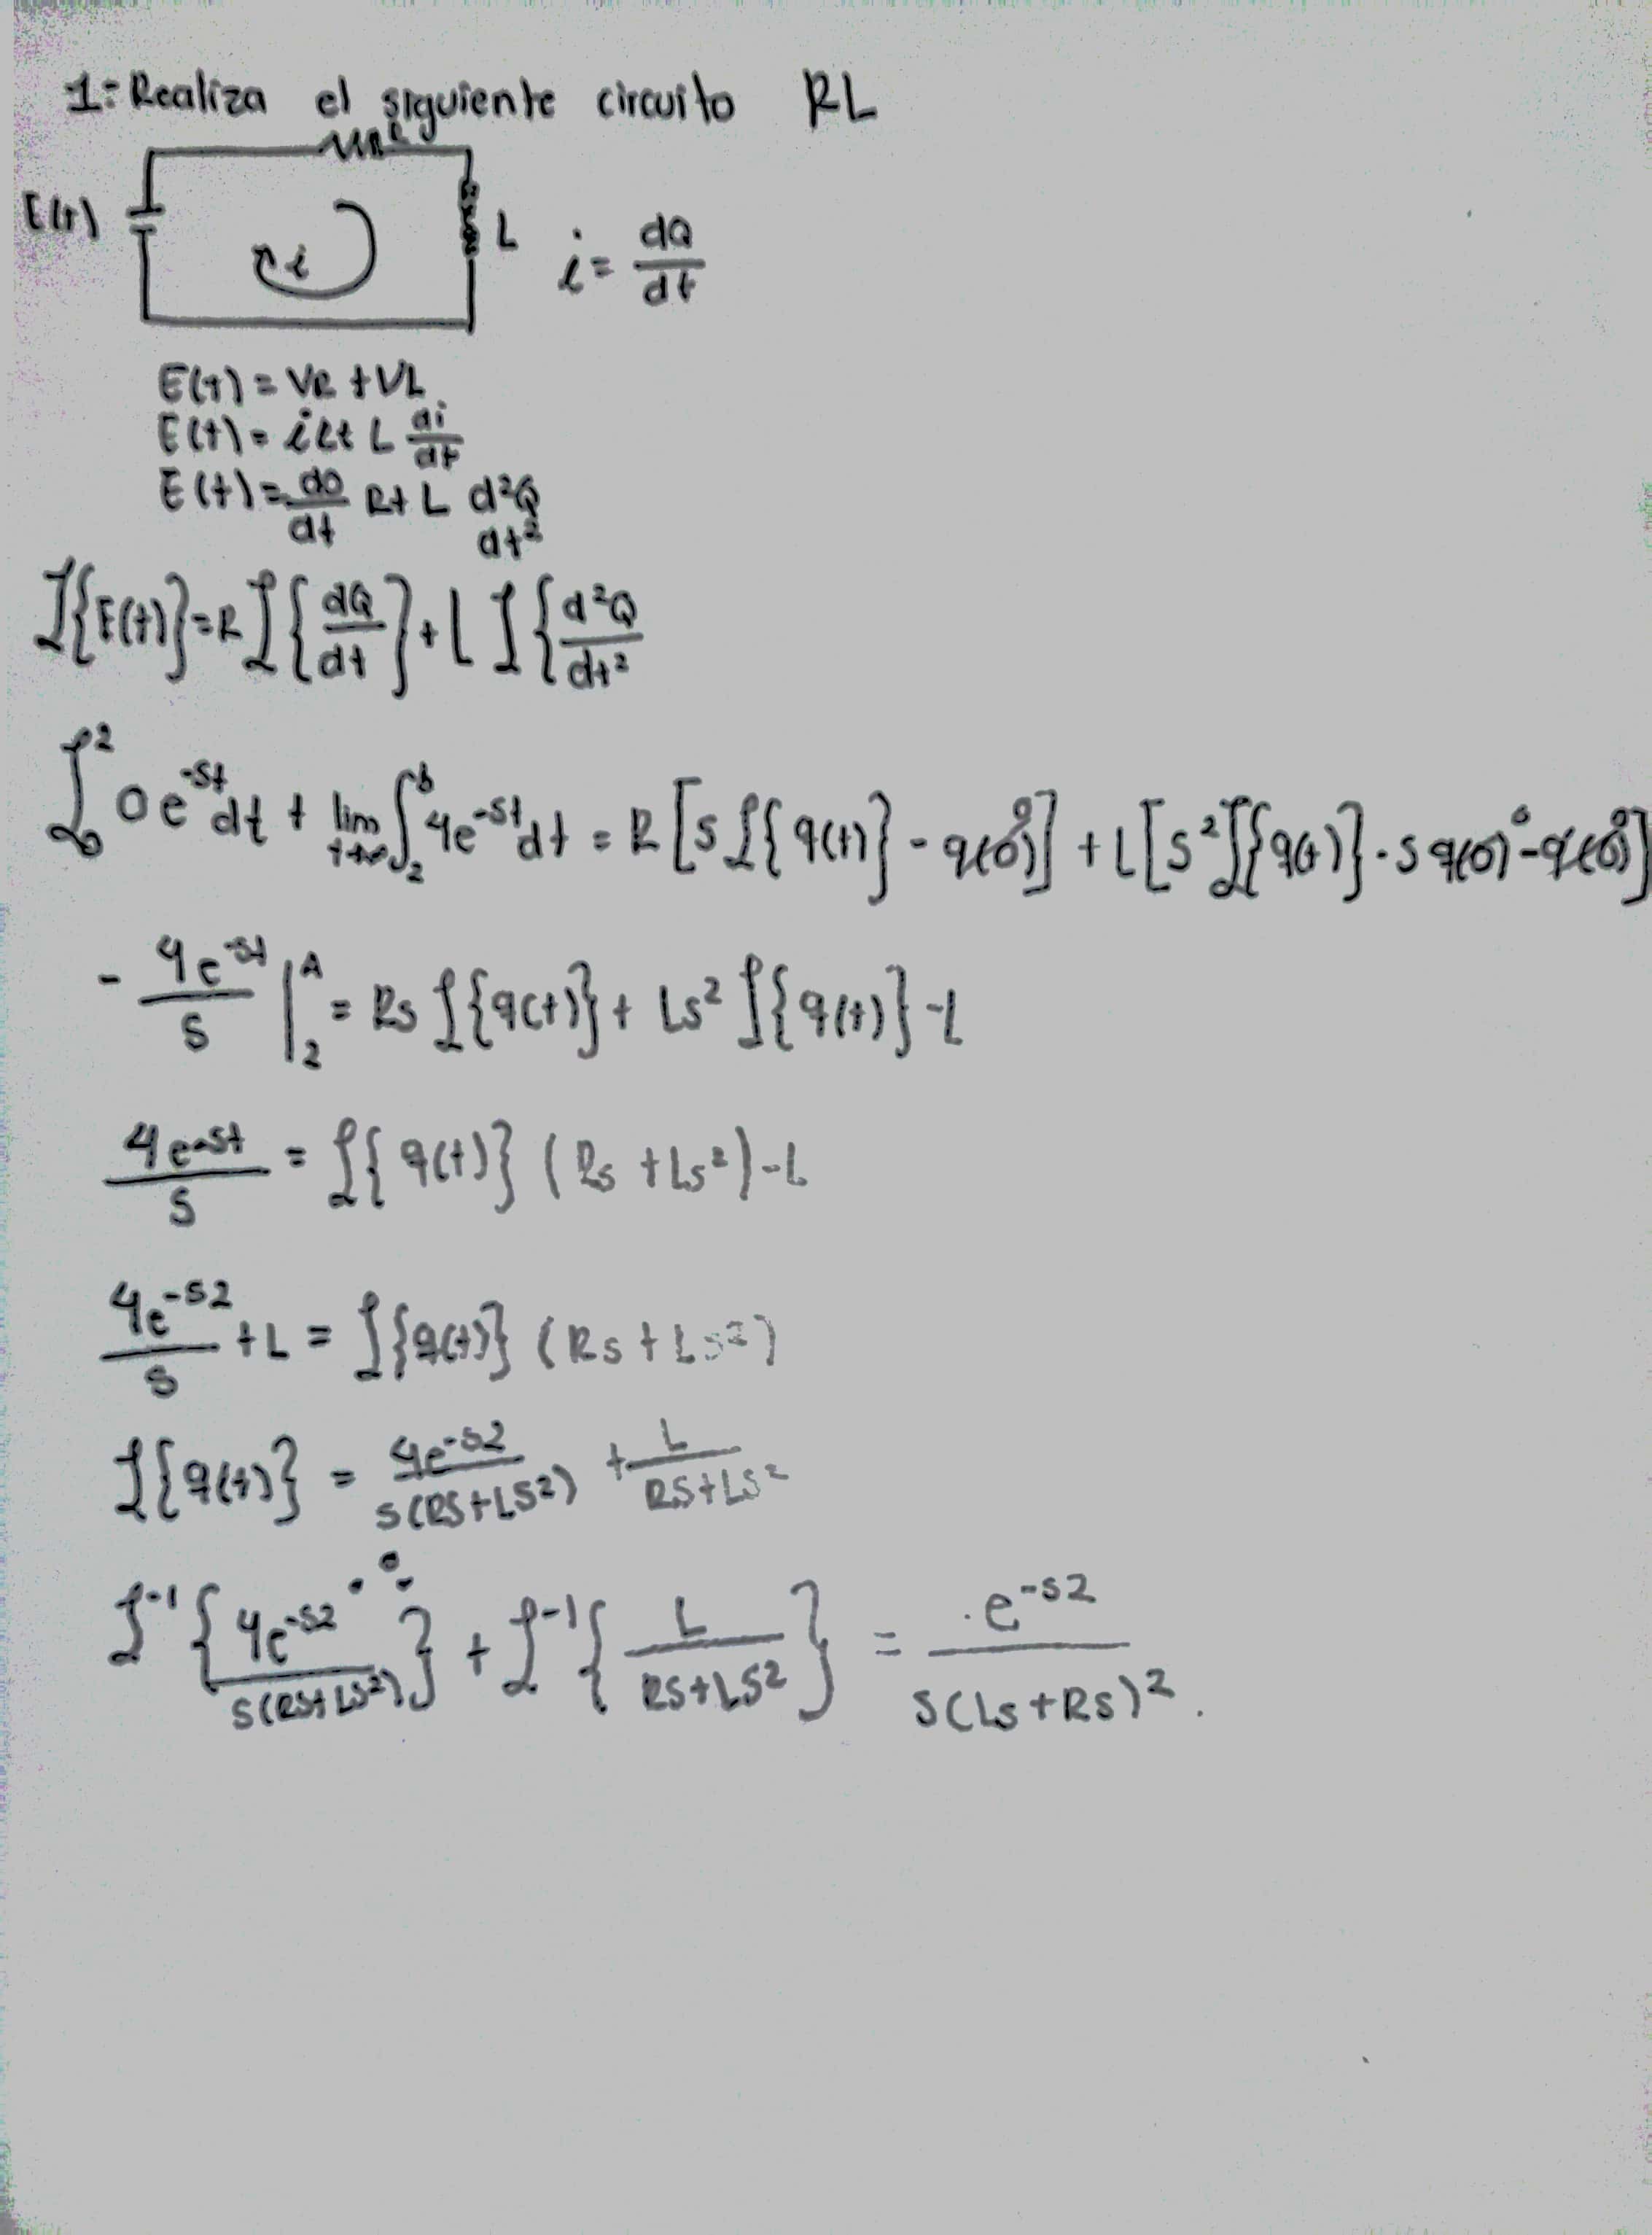 1:- Realiza el siguiente circuito RL
R
E(t)
L
i
i = dQ/dt
E(t) = VR + VL
E(t) = iR + L di/dt
E(t) = dQ/dt R + L d²Q/dt²
ℒ{E(t)} = R ℒ{dQ/dt} + L ℒ{d²Q/dt²
∫₀² 0e^-st dt + lim ∫₂^b 4e^-st dt = R [s ℒ{q(t)} - q(0)⁰] + L [s² ℒ{q(t)} - s q(0)⁰ - q(0)⁰]
- 4e^-st/s |₂^A = Rs ℒ{q(t)} + Ls² ℒ{q(t)} - L
4e^-st/s = ℒ{q(t)} (Rs + Ls²) - L
4e^-s2/s + L = ℒ{q(t)} (Rs + Ls²)
ℒ{q(t)} = 4e^-s2/s(Rs+Ls²) + L/Rs+Ls²
ℒ^-1 {4e^-s2/s(Rs+Ls²)} + ℒ^-1 {L/Rs+Ls²} = e^-s2/s(Ls+Rs)².